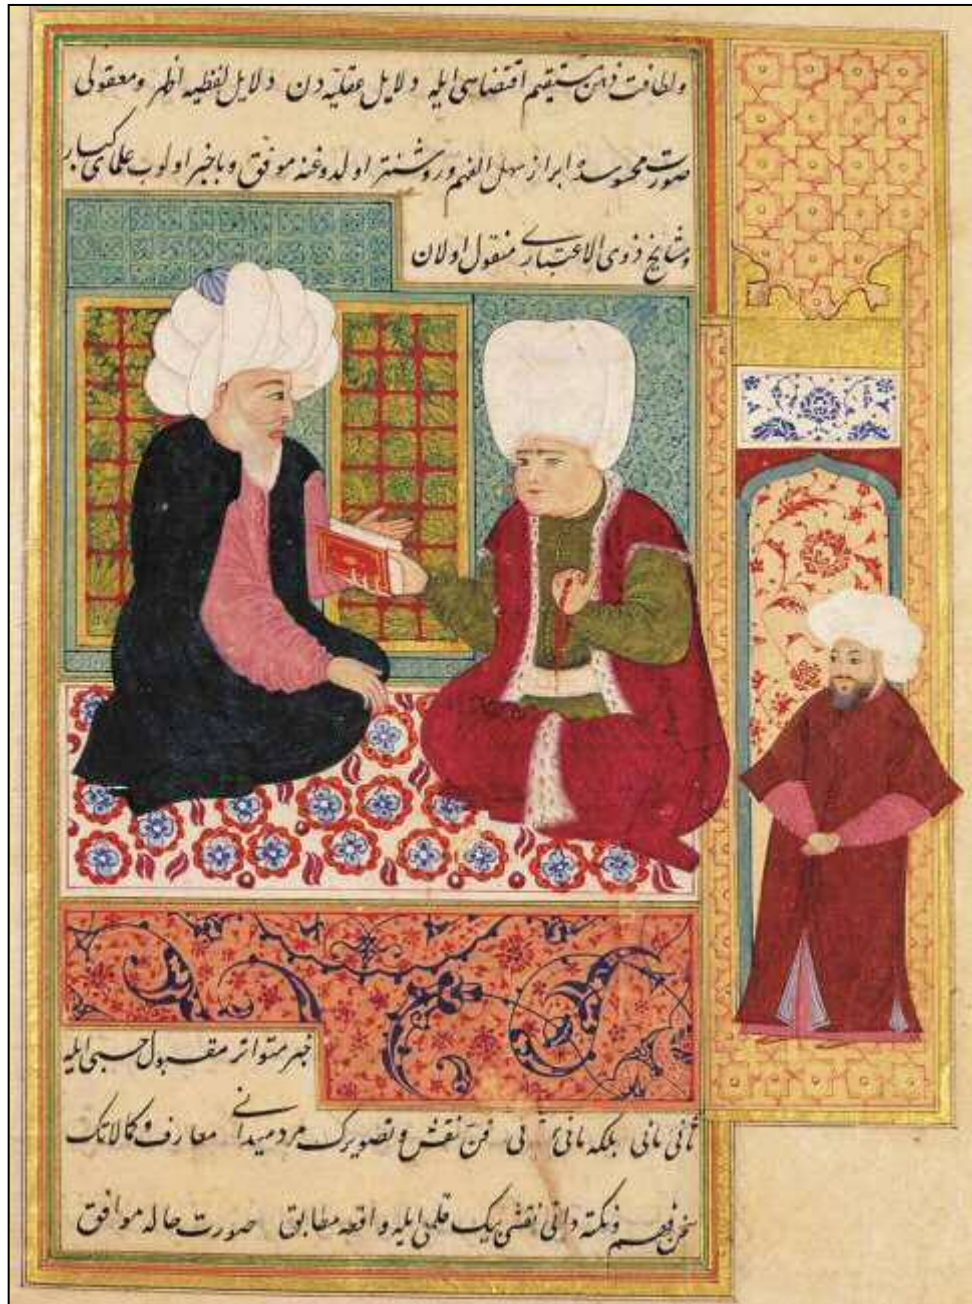 ولطافت ذهن مستقیم اقتضاسی ایله دلایل عقلیه دن دلایل لفظیه اظهر و معقولی
صورت محسوسده ابراز سهل الفهم و روشنتر اولدوغنه موفق و باخبر اولوب علمای کبار
و مشایخ ذوی الاعتباردن منقول اولان
خبر متواتر مقبول حسبی ایله
ثانی مانی بلکه مانئ ثانی فن نقش و تصویرک مرد میدانی معارف و کمالاتک
سخن فهم و نکته دانی نقشی بیک قلمی ایله واقعه مطابق صورت حاله موافق